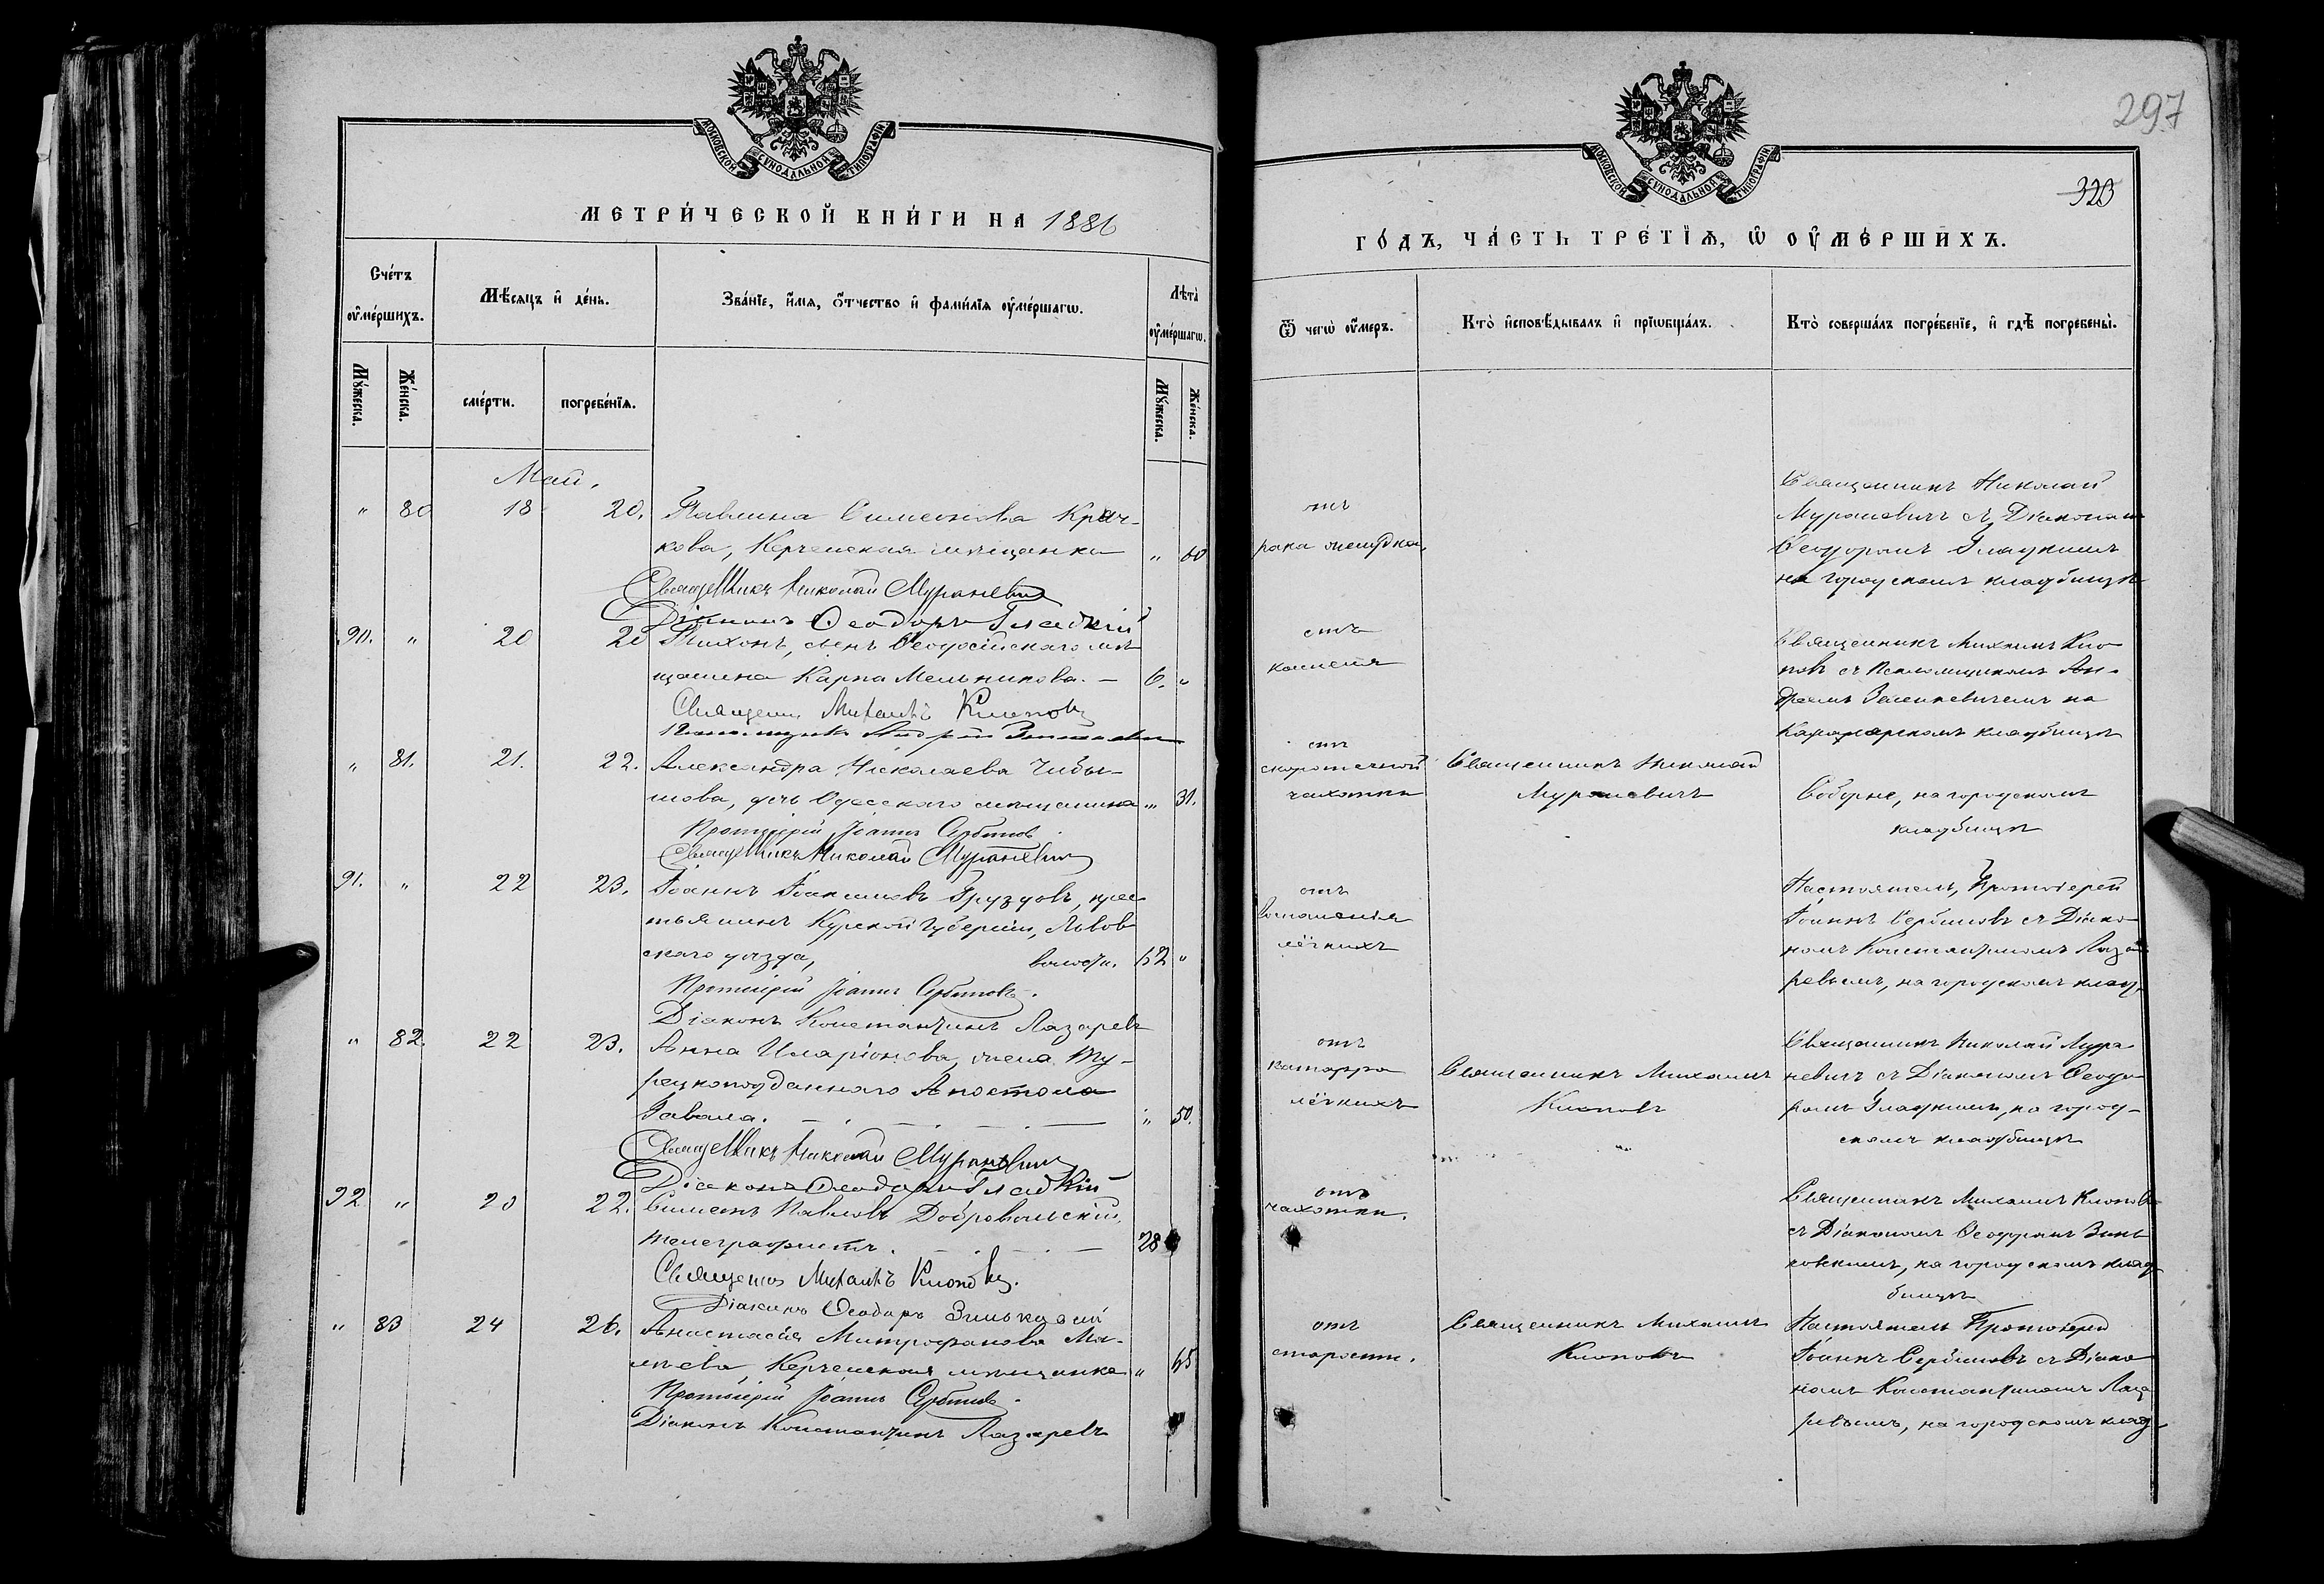 МОСКОВСКОЙ СѴНОДАЛЬНОЙ ТИПОГРАФІИ
МЕТРИ́ЧЕСКОЙ КНИ́ГИ НА 1886
Сче́тъ ᲂу҆ме́ршихъ.
Мѣ́сяцъ и҆ де́нь.
Зва́нїе, и҆́мѧ, ѻ҆́тчество и҆ фами́лїѧ ᲂу҆ме́ршагѡ.
Лѣ́та ᲂу҆ме́ршагѡ.
Мꙋ́жеска.
Же́нска.
сме́рти.
погребе́нїѧ.
Мꙋ́жеска.
Же́нска.
Май.
" 80 18 20. Павлина Симеонова Крач-
кова, Керченская мѣщанка " 60
Священникъ Николай Мураневич
Діаконъ Ѳеодоръ Гладкій
90. " 20 20 Тихонъ, сынъ Ѳеодосійскаго мѣ-
щанина Карпа Мельникова. – 6. "
Священ Михаилъ Клопов
Псаломщикъ Андрей
" 81. 21. 22. Александра Николаева
дочь Одесскаго мѣщанина " 31.
Протоіерей Іоаннъ Сербинов
Священникъ Николай Мураневич
91. " 22 23. Іоаннъ Іоакимовъ Груздовъ, крес
тьянинъ Курской губерніи, Льгов
скаго уѣзда, волости. 62 "
Протоіерей Іоаннъ Сербиновъ.
Діаконъ Константинъ Лазаревъ
" 82. 22 23. Анна Иларіонова, жена ту-
рецкоподданнаго Апостола
" 50.
Священникъ Николай Мураневич
Діаконъ Ѳеодоръ Гладкій
92 " 20 22. Симеонъ Павловъ Добровольскій,
телеграфистъ. 28
Священ Михаилъ Клопов.
Діаконъ Ѳеодоръ Зиньковскій
" 83 24 26. Анастасія Митрофанова
Керченская мѣщанка " 65
Протоіерей Іоаннъ Сербинов.
Діаконъ Константинъ Лазаревъ
297
МОСКОВСКОЙ СѴНОДАЛЬНОЙ ТИПОГРАФІИ
323
ГО́ДЪ, ЧА́СТЬ ТРЕ́ТЇѦ, Ѡ҆ ОУ҆МЕ́РШИХЪ.
Ѿ чегѡ̀ ᲂу҆́меръ.
Кто̀ и҆сповѣ́дывалъ и҆ прїѡбща́лъ.
Кто̀ соверша́лъ погребе́нїе, и҆ гдѣ̀ погребены̀.
отъ
рака желудка.
Священникъ Николай
Мураневичъ съ Діакономъ
Ѳеодоромъ Гладкимъ
на городскомъ кладбищѣ
отъ
кашеля
Священникъ Михаилъ Кло
повъ съ Псаломщикомъ Ан-
дреемъ на
кладбищѣ
отъ
скоротечной
чахотки
Священникъ Николай
Мураневичъ
Соборне, на городскомъ
кладбищѣ
отъ
воспаленія
лёгкихъ
Настоятель, Протоіерей
Іоаннъ Сербиновъ съ Діако
номъ Константиномъ Лаза
ревымъ, на городскомъ клад.
отъ
катарра
лёгкихъ
Священникъ Михаилъ
Клоповъ
Священникъ Николай Мура
невичъ съ Діакономъ Ѳеодо
ромъ Гладкимъ, на город-
скомъ кладбищѣ
отъ
чахотки.
Священникъ Михаилъ Клоповъ
съ Діакономъ Ѳеодоромъ Зинь
ковскимъ, на городскомъ клад
бищѣ
отъ
старости.
Священникъ Михаилъ
Клоповъ
Настоятель Протоіерей
Іоаннъ Сербиновъ съ Діако
номъ Константиномъ Лаза
ревымъ, на городскомъ клад-